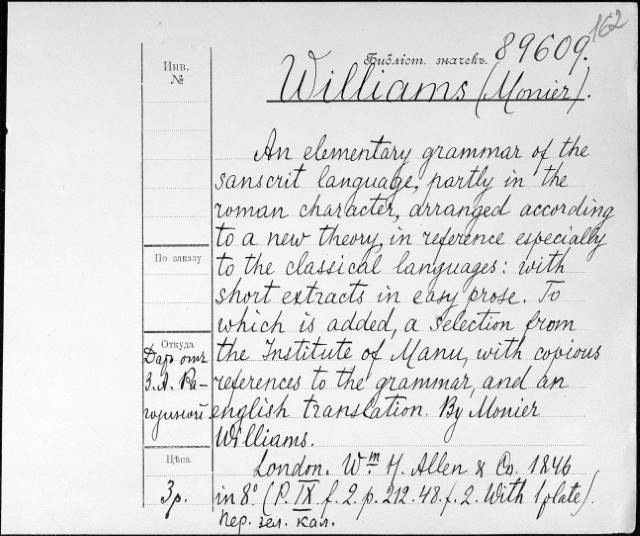 162
Библіот. значекъ. 89609.
Инв.
№
Williams (Monier).
An elementary grammar of the
sanscrit language, partly in the
roman character, arranged according
to a new theory, in reference especially
По заказу
to the classical languages: with
short extracts in easy prose. To
which is added, a selection from
Откуда
Даръ отъ
З. А. Ра-
гозиной
the Institute of Manu, with copious
references to the grammar, and an
english translation. By Monier
Williams.
Цѣна
3 р.
London. Wm H. Allen & Co. 1846
in 8° (P. IX f. 2. p. 212. 48. f. 2. With 1 plate).
Пер. зел. кал.